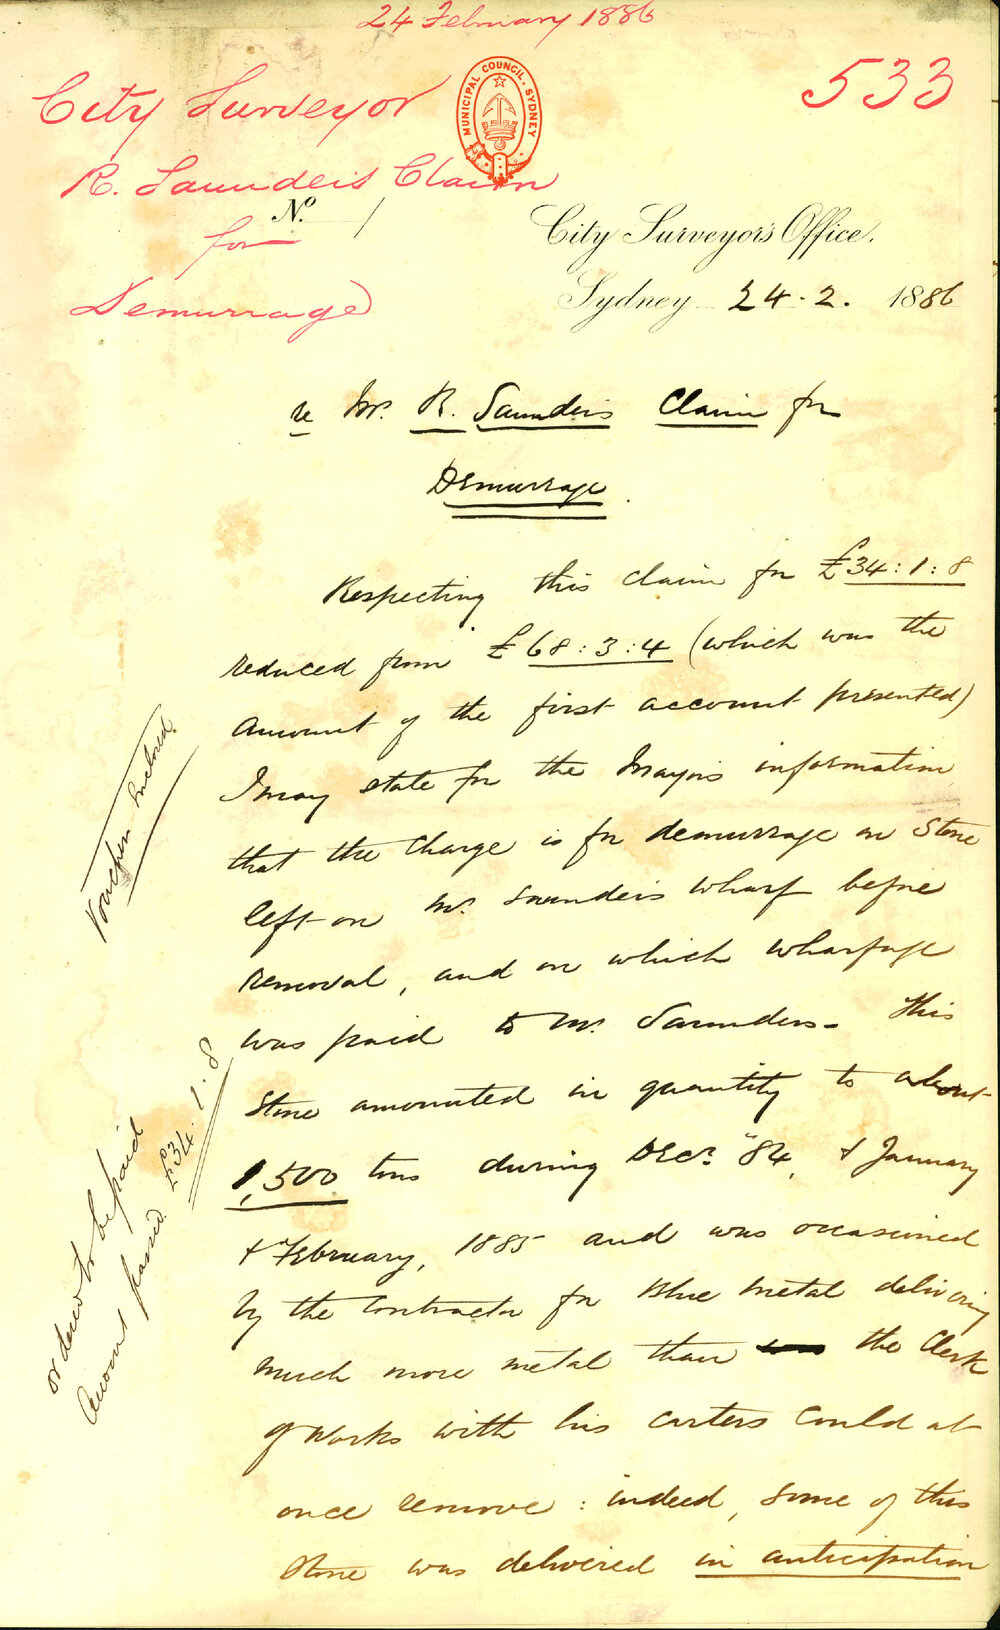 24 February 1886
533
City Surveyor
R. Saunders Claim
for
Demurrage
MUNICIPAL COUNCIL. SYDNEY
No.
City Surveyor's Office.
Sydney 24.2. 1886
re Mr. R. Saunders Claim for
Demurrage.
Respecting this claim for £34:1:8
reduced from £68:3:4 (which was the
amount of the first account presented)
I may state for the Mayor's information
that the charge is for demurrage on Stone
left on Mr. Saunders wharf before
removal, and on which wharfage
was paid to Mr. Saunders - This
Stone amounted in quantity to about
1,500 tons during Decr. "84, & January
& February, 1885 and was occasioned
by the Contractor for Blue Metal delivering
much more metal than the Clerk
of Works with his carters could at
once remove: indeed, some of this
Stone was delivered in anticipation
Voucher Enclosed.
ordered to be paid
Amount passed. £34.1.8